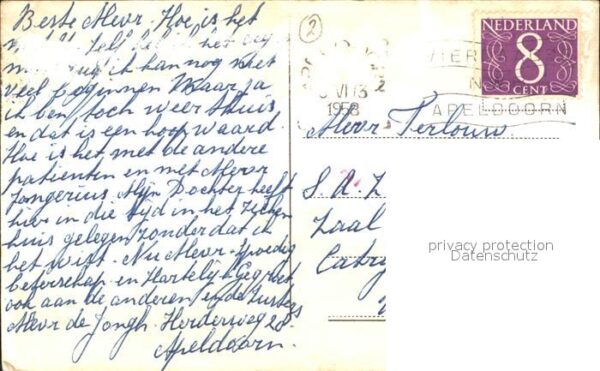 Beste Mevr. Hoe is het
ik kan nog niet
veel beginnen Maar ja
ik ben toch weer thuis
en dat is een hoop waard.
Hoe is het met de andere
patienten en met Mevr
Jongerius Mijn Dochter heeft
hier in die tijd in het Zieken
huis gelegen zonder dat ik
het wist. Nu Mevr. Spoedig
beterschap en Hartelijk Gegroet
ook aan de anderen en de Zusters
Mevr de Jongh. Herderweg 28.
Apeldoorn.
2
1958
APELDOORN
NEDERLAND
8
CENT
Mevr Terlouw.
S.A.Z
Zaal
Catry
privacy protection
Datenschutz